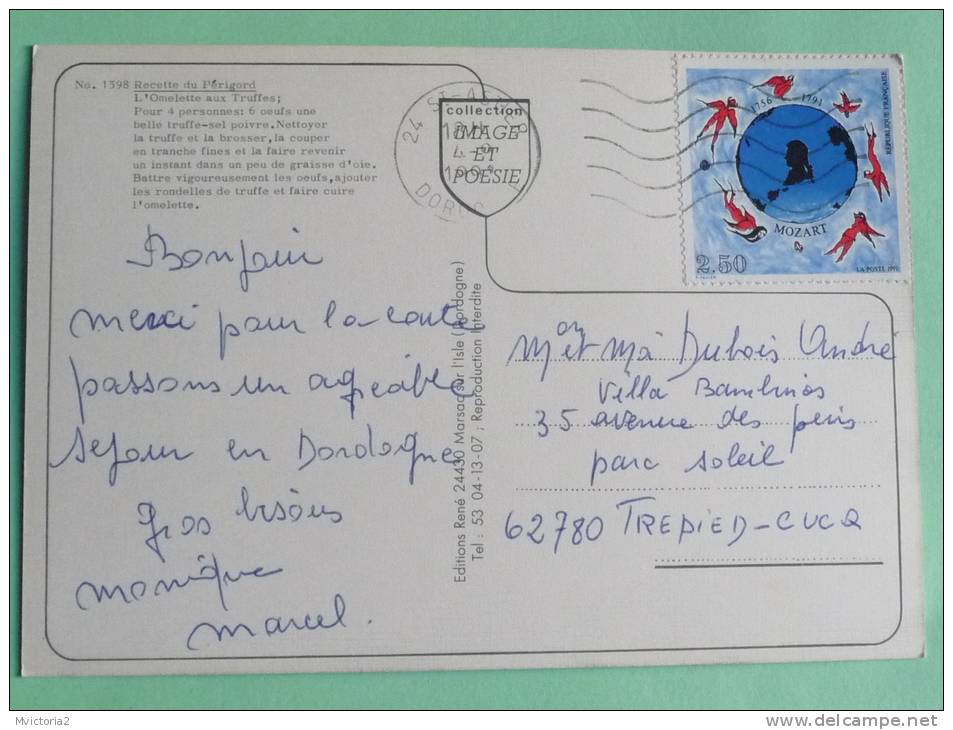 No. 1598 Recette du Périgord
L'Omelette aux Truffes;
Pour 4 personnes: 6 oeufs une
belle truffe-sel poivre.Nettoyer
la truffe et la brosser, la couper
en tranche fines et la faire revenir
un instant dans un peu de graisse d'oie.
Battre vigoureusement les oeufs,ajouter
les rondelles de truffe et faire cuire
l'omelette.
Bonjour
merci pour la carte
passons un agréable
séjour en Dordogne
Gros bisous
monique
marcel.
collection
IMAGE
ET
POÉSIE
24 ST-ASTIER
DORDOGNE
Editions René 24430 Marsac sur l'Isle (Dordogne)
Tel : 53 04-13-07 ; Reproduction Interdite
1756 1791
RÉPUBLIQUE FRANÇAISE
MOZART
2.50
LA POSTE 1991
Mon et Me Dubois André
Villa Bambinos
35 avenue des pins
parc soleil
62780 TREPIED-CUCQ
Mvictoria2
delcampe.net